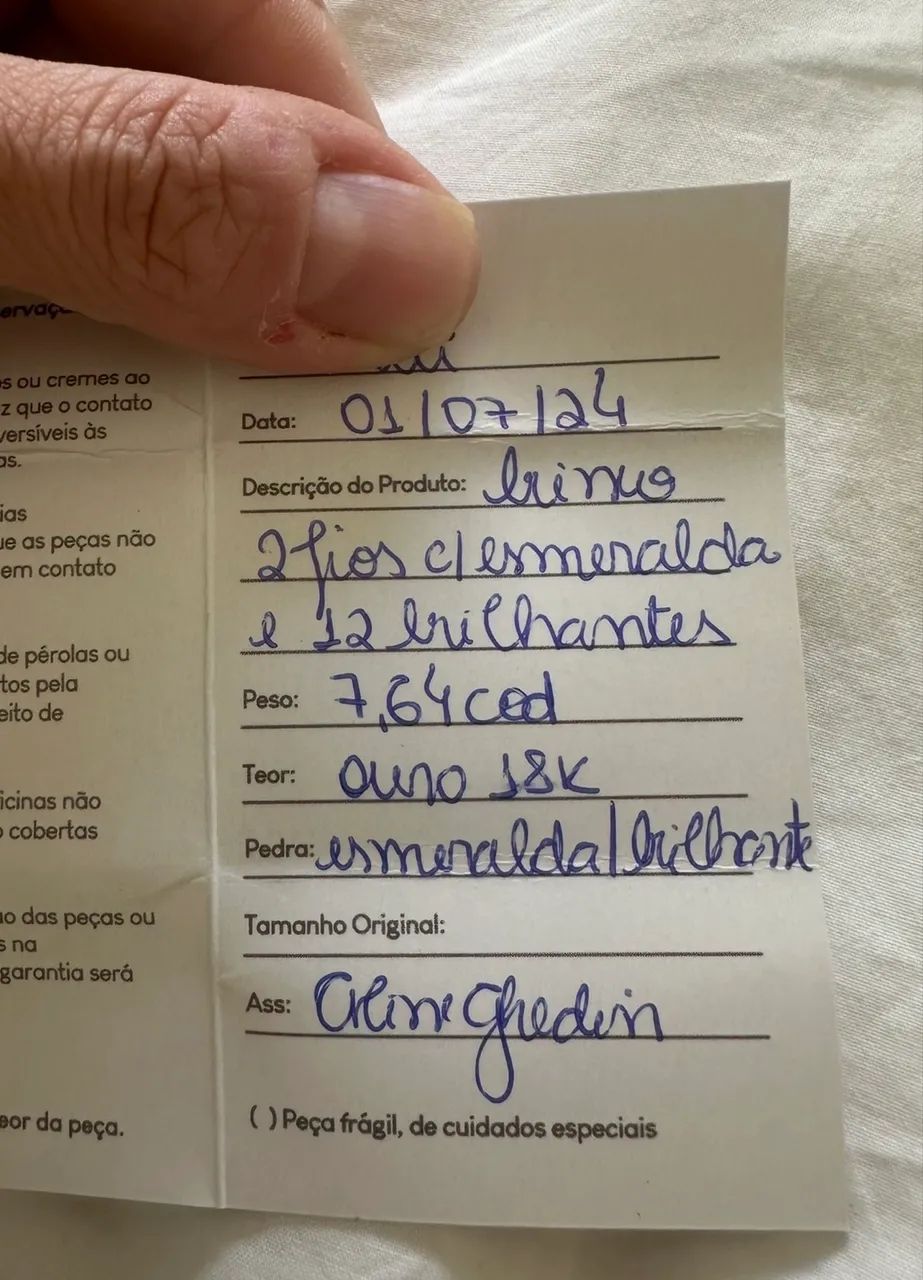 s ou cremes ao
z que o contato
versíveis às
as.
ias
ue as peças não
em contato
de pérolas ou
tos pela
eito de
icinas não
o cobertas
ão das peças ou
s na
garantia será
eor da peça.
Data: 01/07/24
Descrição do Produto: brinco
2 fios c/ esmeralda
e 12 brilhantes
Peso: 7,64
Teor: ouro 18K
Pedra: esmeralda/brilhante
Tamanho Original:
Ass: Aline Ghedin
( ) Peça frágil, de cuidados especiais